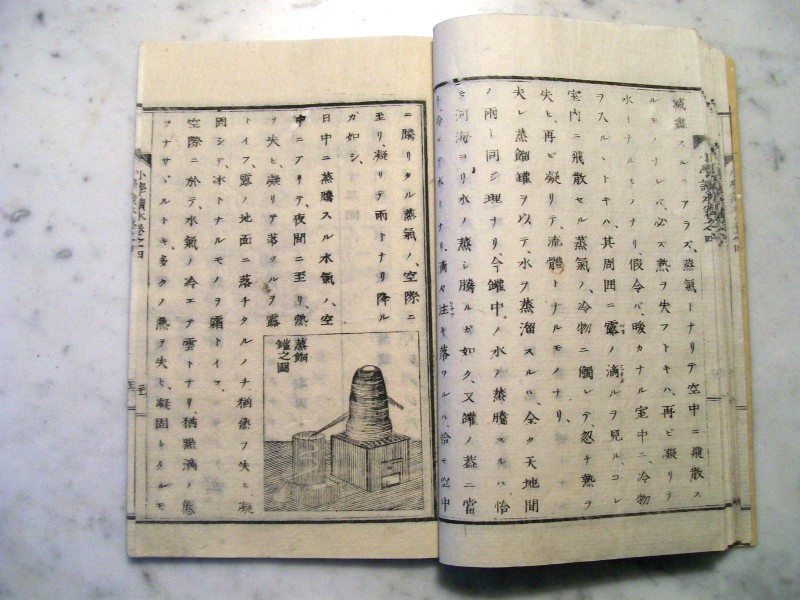 減盡スル アラズ、蒸氣トナリテ空中ニ飛散ス
ルモノナレバ、必ズ熱ヲ失フトキハ、再ビ凝リテ
水トナルモノナリ、假令バ、暖カナル室中ニ、冷物
ヲ入ル、トキハ、其周囲ニ露ノ滴ルヲ見ル、コレ
室内ニ飛散セル蒸氣ノ、冷物ニ觸レテ、忽チ熱ヲ
失ヒ、再ビ凝リテ、流體トナルモノナリ、
夫レ蒸餾罐ヲ以テ、水ヲ蒸溜スルハ、全ク天地間
ノ雨ト同シ理ナリ、今罐中ノ水ノ蒸騰スルハ、恰
モ河海ヨリ水ノ蒸シ騰ルガ如ク、又罐ノ蓋ニ當
リ、冷エテ水トナリ、滴々注キ落ツルハ、恰モ空中
ニ騰リタル蒸氣ノ、空際ニ
至リ、凝リテ雨トナリ降ル
ガ如シ、
日中ニ蒸騰スル水氣ノ、空
中ニアリテ、夜間ニ至リ、熱
ヲ失ヒ、凝リテ落ツルヲ露
トイフ、露ノ地面ニ落チタルノチ、猶熱ヲ失ヒ、凝
固シテ、氷トナルモノヲ霜トイフ、
空際ニ於テ、水氣ノ冷エ雲トナリ、猶點滴ノ態
ヲナサヾルトキ、多クノ熱ヲ失ヒ、凝固シタルモ
蒸餾
罐之圖
小學讀本卷之四